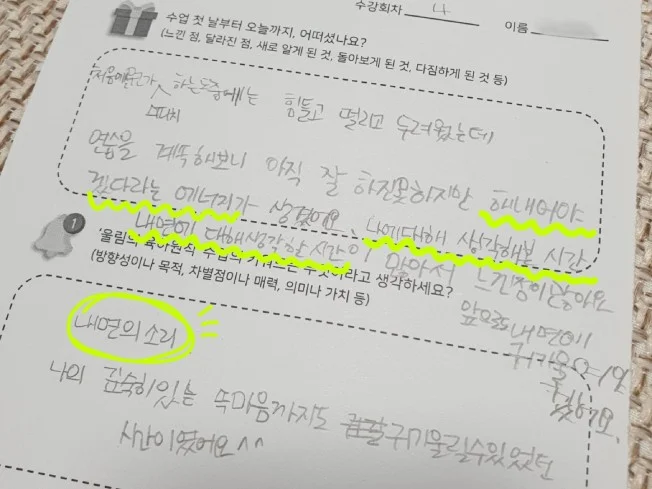 수강회차 4 이름
수업 첫 날부터 오늘까지, 어떠셨나요?
(느낀 점, 달라진 점, 새로 알게 된 것, 돌아보게 된 것, 다짐하게 된 것 등)
하는도중에는 힘들고 떨리고 두려웠는데
연습을 계속해보니 아직 잘 하진못하지만 해내어야
겠다라는 에너지가 생겼어요. 나에대해 생각해본 시간
내면에 대해생각한시간이 많아서 느낀점이많아요
1
수업의 키워드는 무엇이라고 생각하세요?
(방향성이나 목적, 차별점이나 매력, 의미나 가치 등)
앞으로내면에
귀기울
내면의 소리
나의 깊숙히있는 속마음까지도 귀기울릴수있었던
시간이였어요 ^^